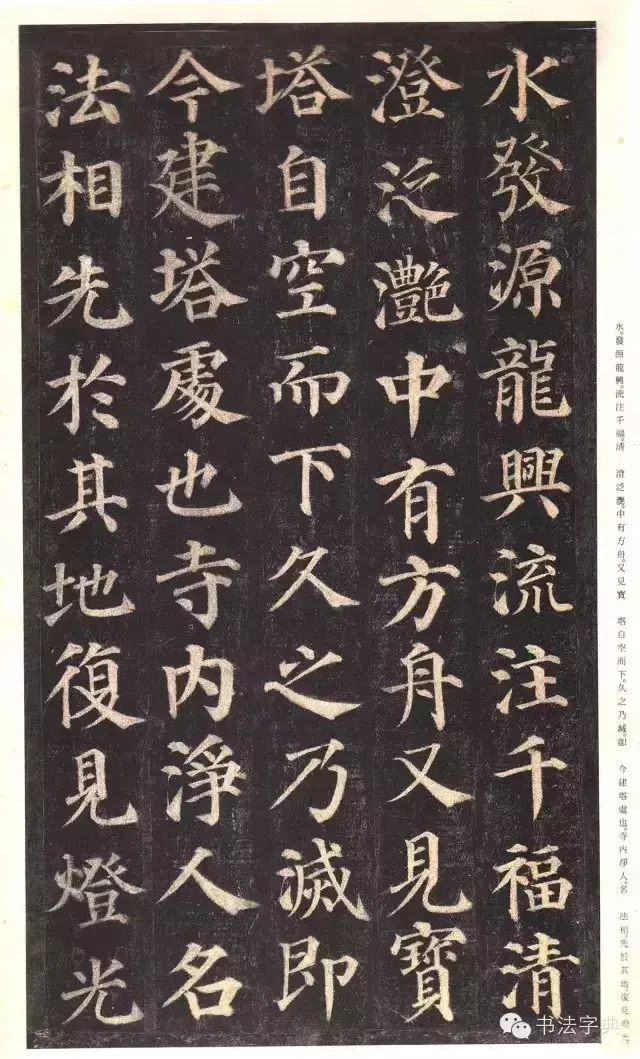 水發源龍興流注千福清
澄泛灧中有方舟又見寶
塔自空而下久之乃滅即
今建塔處也寺内淨人名
法相先於其地復見燈光
水。發源龍興。流注千福。清 澄泛灧。中有方舟。又見寶 塔自空而下。久之乃滅。卽 今建塔處也。寺内淨人。名 法相。先於其地。復見燈光。
书法字典